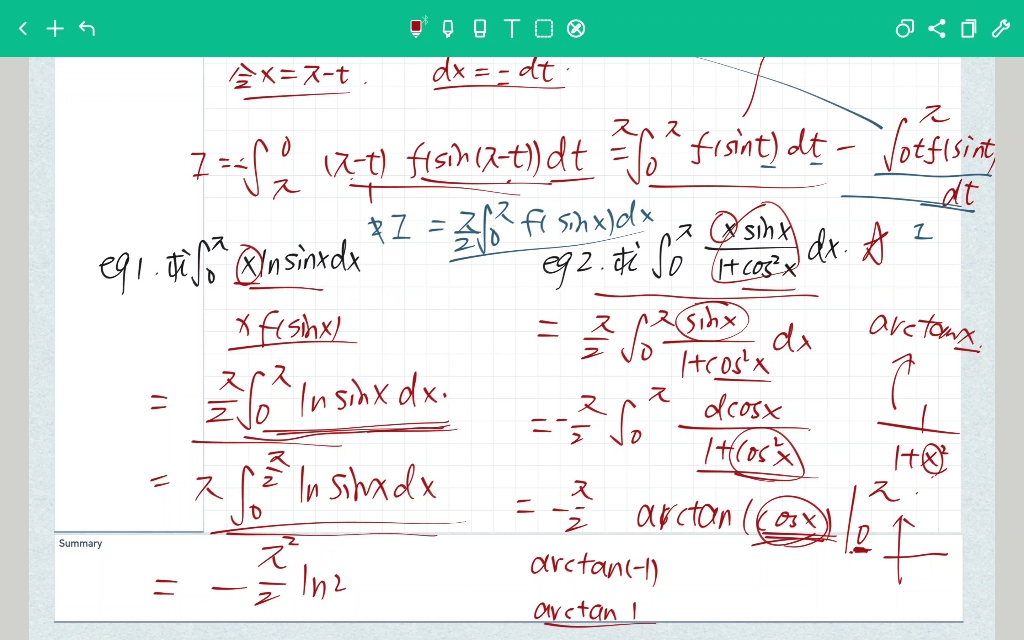 令x=π-t. dx=-dt.
I=-∫_π^0 (π-t) f(sin(π-t))dt = π∫_0^π f(sint)dt - ∫_0^π tf(sint)dt
I
* I = π/2 ∫_0^π f(sinx)dx
eg1. 求∫_0^π x ln sinx dx
x f(sinx)
= π/2 ∫_0^π ln sinx dx.
= π ∫_0^{π/2} ln sinx dx
= -π²/2 ln2
eg2. 求∫_0^π x sinx/(1+cos²x) dx.
= π/2 ∫_0^π sinx/(1+cos²x) dx
= -π/2 ∫_0^π dcosx/(1+cos²x)
= -π/2 arctan(cosx)|_0^π.
arctan(-1)
arctan 1
arctanx.
1/(1+x²)
T
Summary